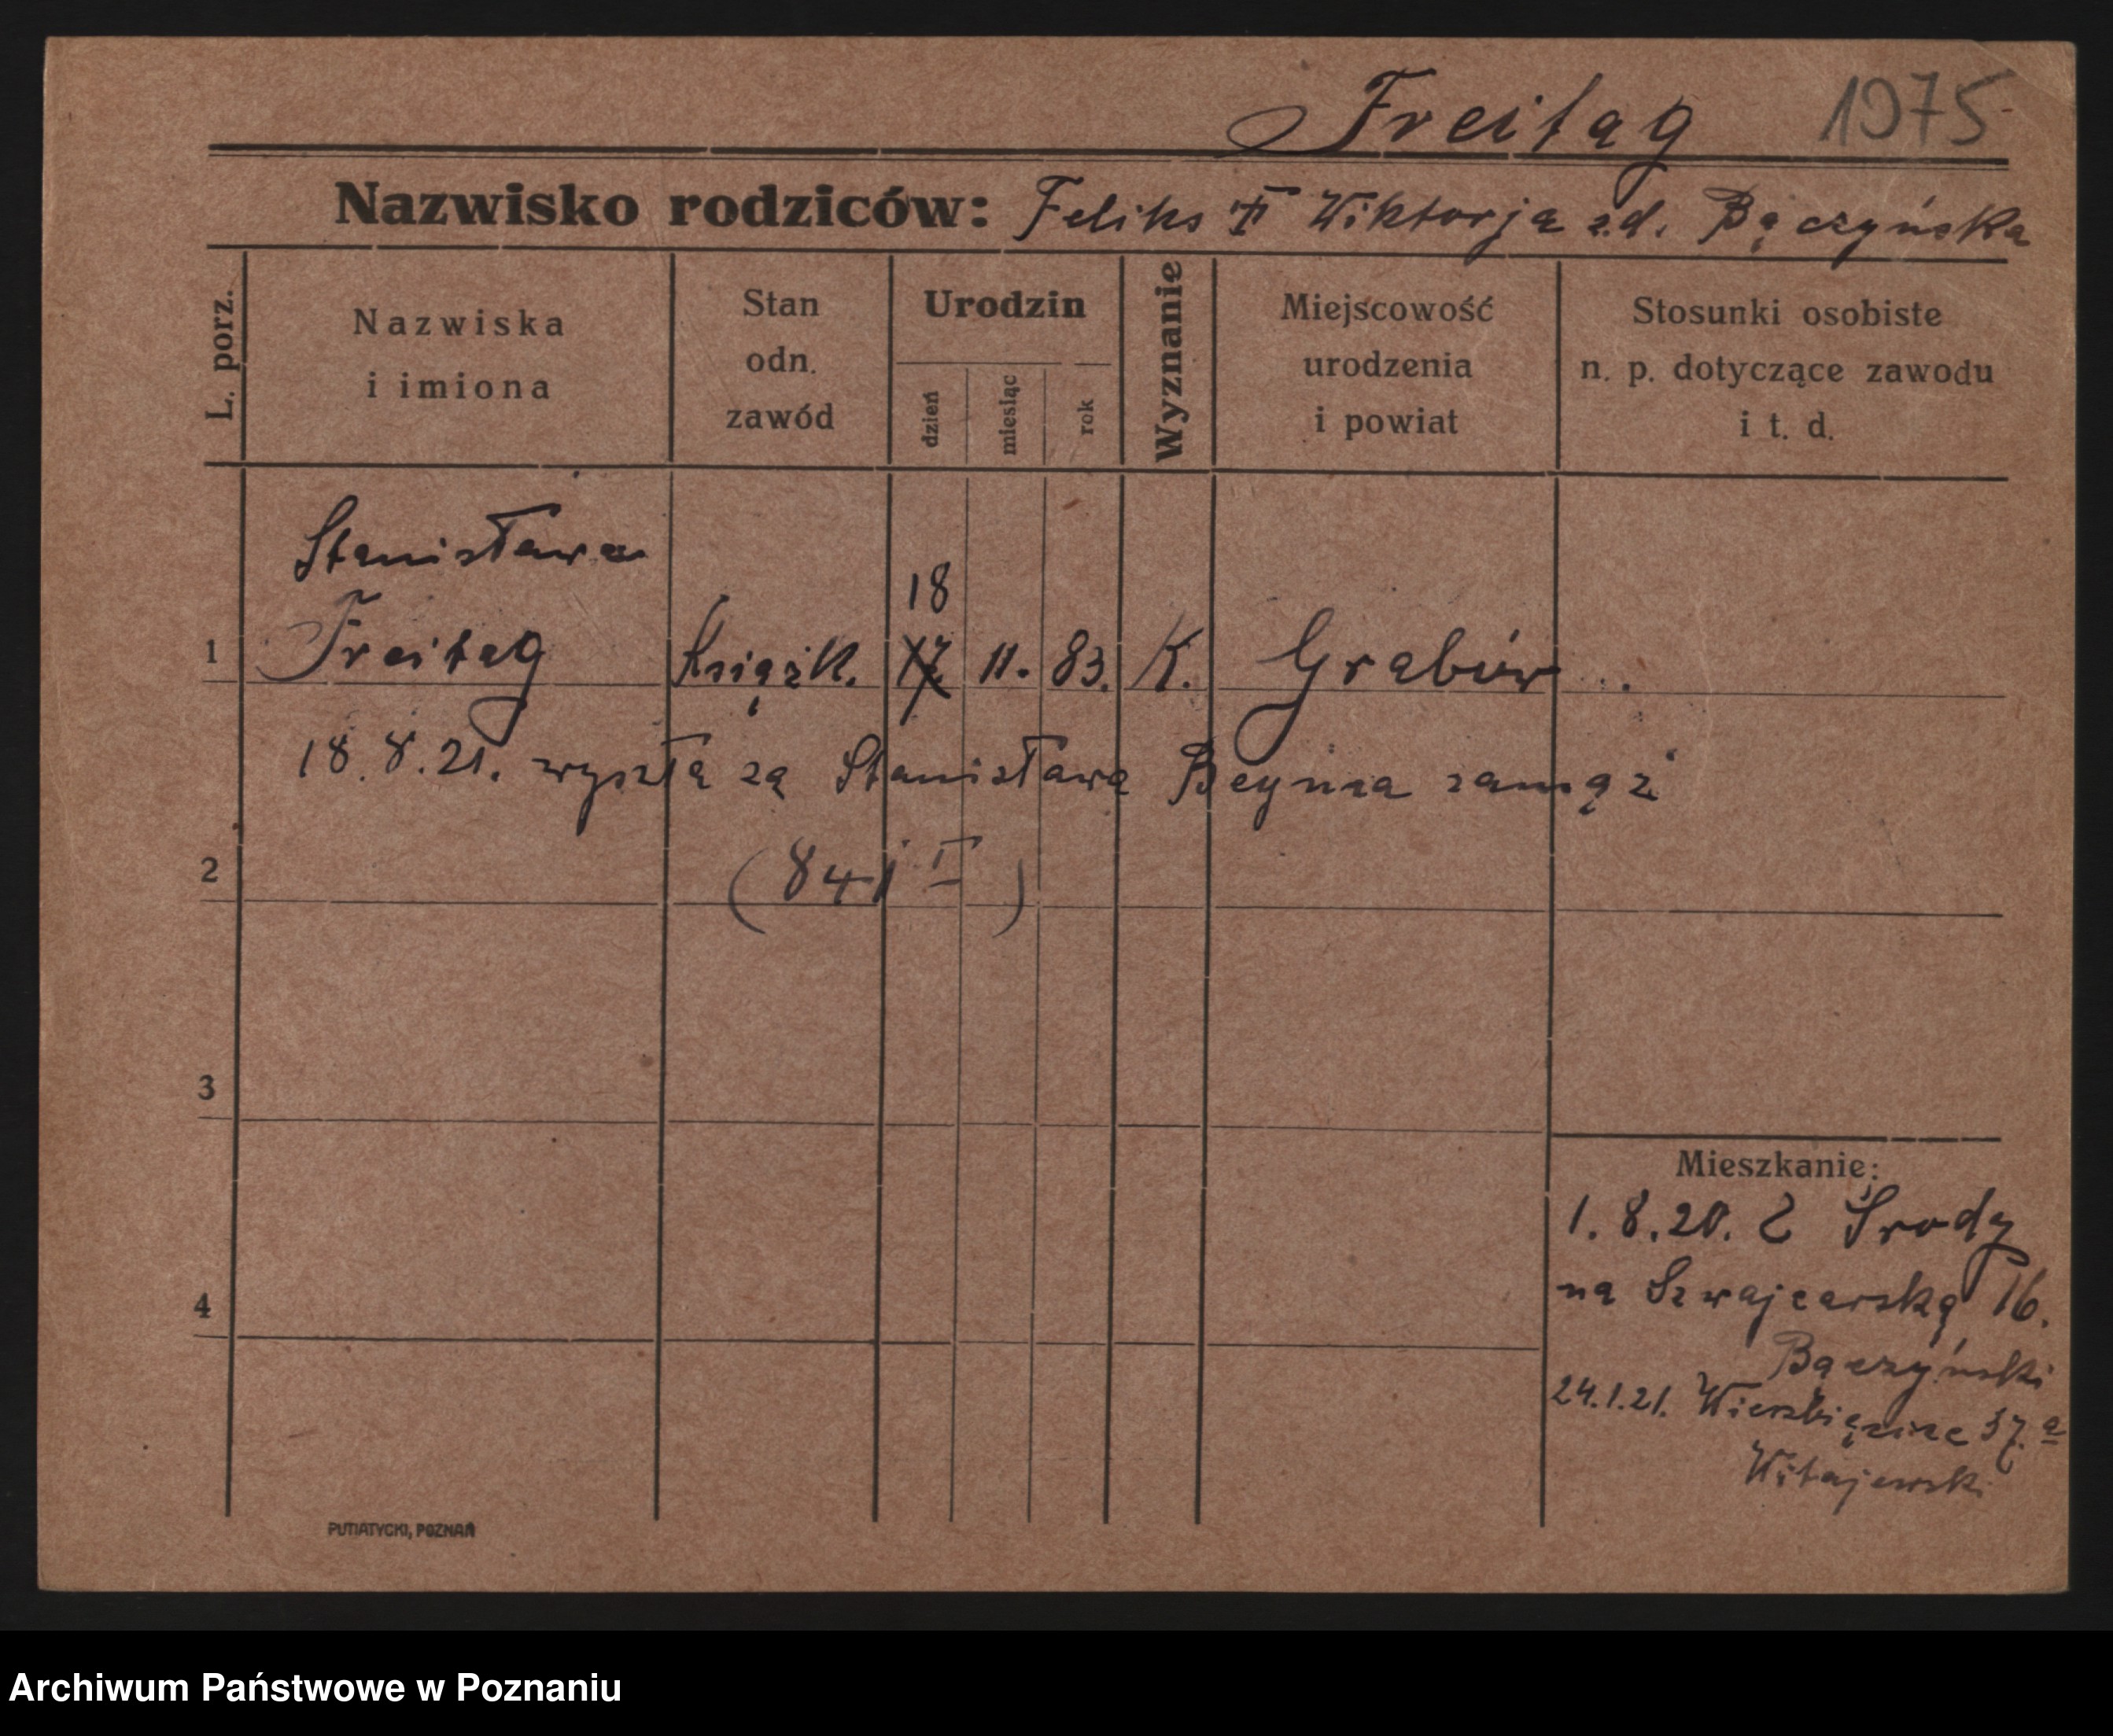 Freitag 1975
Nazwisko rodziców: Feliks Wiktorja z.d. Bączyńska
L. porz.
Nazwiska
i imiona
Stan
odn.
zawód
Urodzin
dzień
miesiąc
rok
Wyznanie
Miejscowość
urodzenia
i powiat
Stosunki osobiste
n. p. dotyczące zawodu
i t. d.
Stanisława
18
1 Freitag Książk. 17. 11. 83. K. Grabów
18.8.21. wyszła za Stanisława zamąż
2 (841 II)
3
Mieszkanie:
1.8.20. z Środy
4 na Szwajcarską 16.
Bączyński
24.1.21. Wierzbięcice 37 a
Witajewski
PUTIATYCKI, POZNAŃ
Archiwum Państwowe w Poznaniu